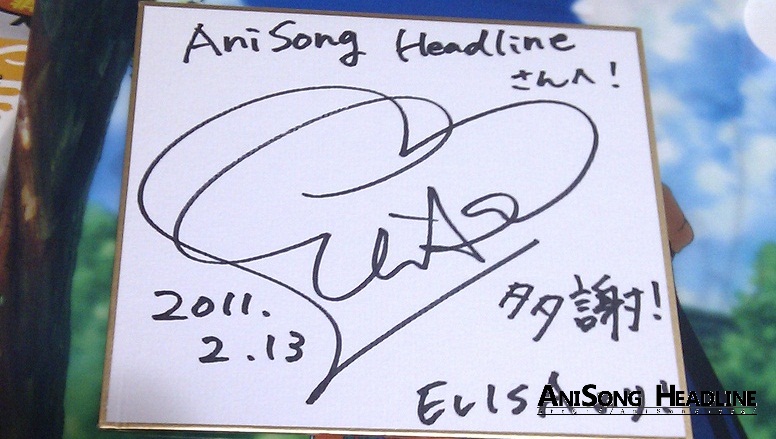 AniSong Headline
さんへ!
2011.
2.13
多謝!
ELISA
AniSong Headline